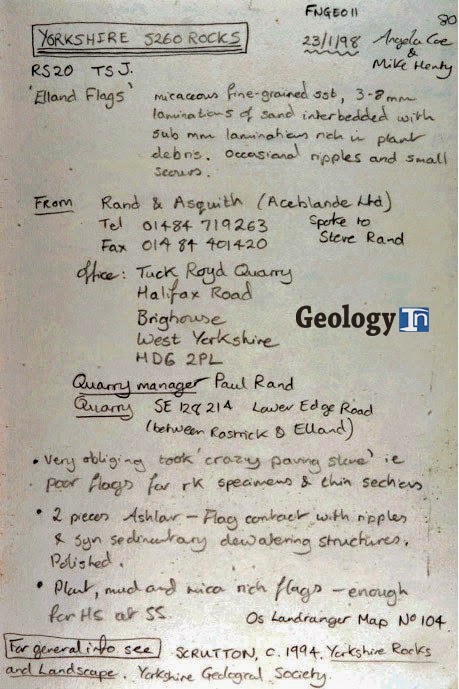 FNGEO11
80
YORKSHIRE S260 ROCKS
23/1/98 Angela Coe
& Mike Henty
RS20 TSJ.
'Elland Flags' micaceous fine-grained sst, 3-8mm
laminations of sand interbedded with
sub mm laminations rich in plant
debris. Occasional ripples and small
scours.
From Rand & Asquith (Aceblande Ltd)
Tel 01484 719263 Spoke to
Fax 01484 401420 Steve Rand
Office: Tuck Royd Quarry
Halifax Road
Brighouse
West Yorkshire
HD6 2PL
Geology In
Quarry manager Paul Rand
Quarry SE 129 214 Lower Edge Road
(between Rastrick & Elland)
• Very obliging took 'crazy paving stone' ie
poor flags for rk specimens & thin sections
• 2 pieces Ashlar - Flag contact with ripples
& syn sedimentary dewatering structures.
Polished.
• Plant, mud and mica rich flags - enough
for HS at SS. Os Landranger Map No 104.
For general info see SCRUTTON, C. 1994. Yorkshire Rocks
and Landscape. Yorkshire Geological Society.